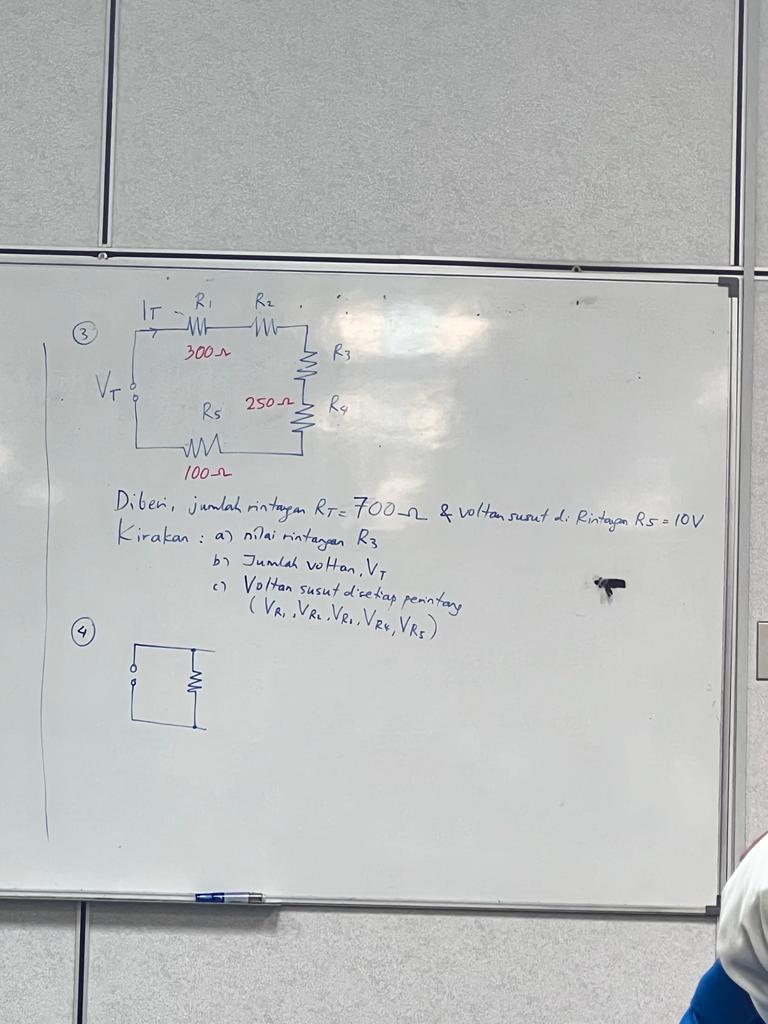 ③
I_T R₁ R₂
300Ω
R₃
V_T
R₅ 250Ω R₄
100Ω
Diberi, jumlah rintangan R_T = 700Ω & voltan susut di Rintangan R5 = 10V
Kirakan : a) nilai rintangan R₃
b) Jumlah voltan, V_T
c) Voltan susut disetiap perintang
(V_R₁, V_R₂, V_R₃, V_R₄, V_R₅)
④